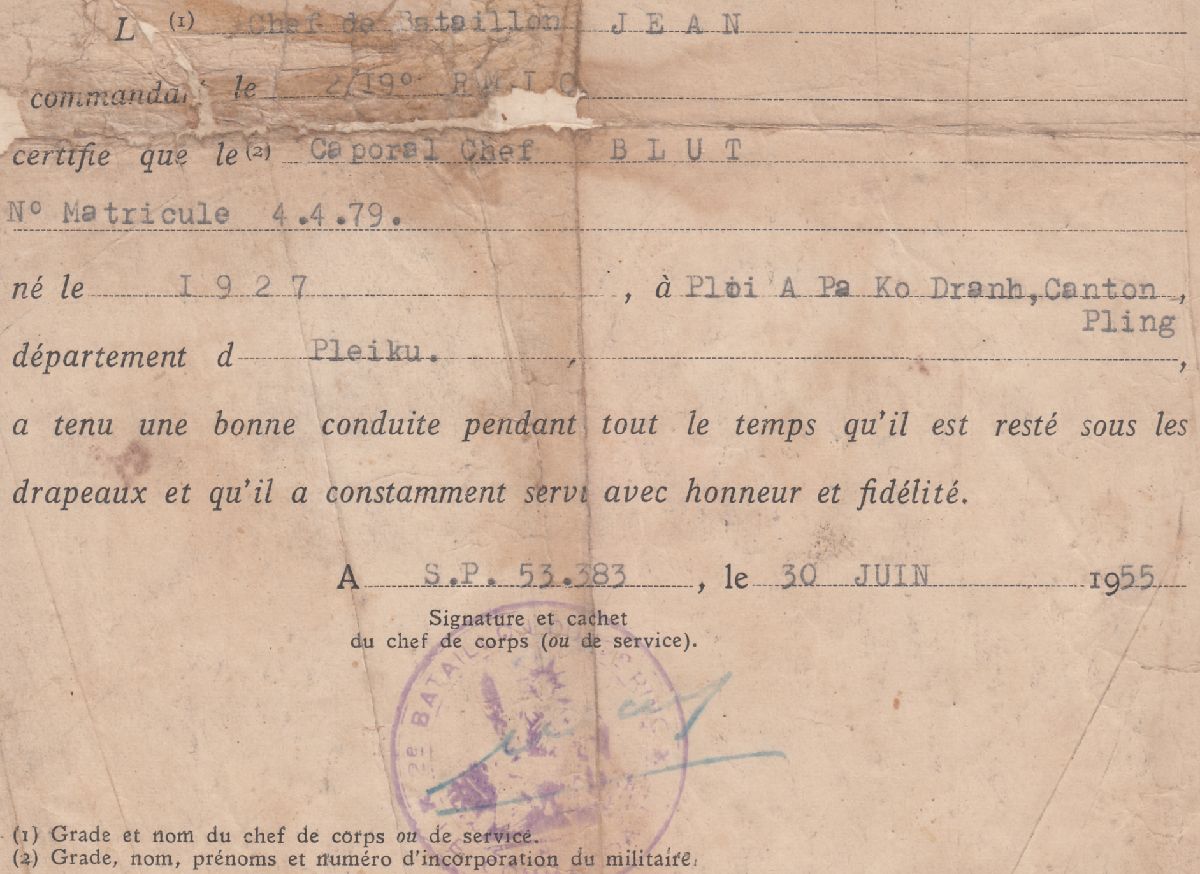 L (1) Chef de Bataillon J E A N
commandant le 2/19° R M I C
certifie que le (2) Caporal Chef B L U T
N° Matricule 4.4.79.
né le I 9 2 7 , à Ploi A Pa Ko Dranh,Canton ,
Pling
département d Pleiku. , ,
a tenu une bonne conduite pendant tout le temps qu'il est resté sous les
drapeaux et qu'il a constamment servi avec honneur et fidélité.
A S.P. 53.383 , le 30 JUIN 1955
Signature et cachet
du chef de corps (ou de service).
2e BATAILLON
(1) Grade et nom du chef de corps ou de service.
(2) Grade, nom, prénoms et numéro d'incorporation du militaire.